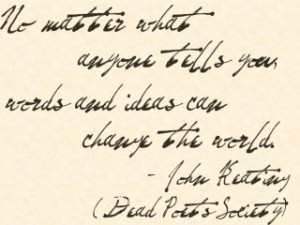 No matter what
anyone tells you,
words and ideas can
change the world.
- John Keating
(Dead Poets Society)